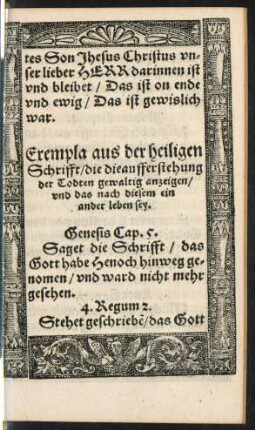 tes Son Jhesus Christus vn-
ser lieber HERR darinnen ist
vnd bleibet / Das ist on ende
vnd ewig / Das ist gewislich
war.
Exempla aus der heiligen
Schrifft / die die aufferstehung
der Todten gewaltig anzeigen /
vnd das nach diesem ein
ander leben sey.
Genesis Cap. 5.
Saget die Schrifft / das
Gott habe Henoch hinweg ge-
nomen / vnd ward nicht mehr
gesehen.
4. Regum 2.
Stehet geschriebẽ / das Gott